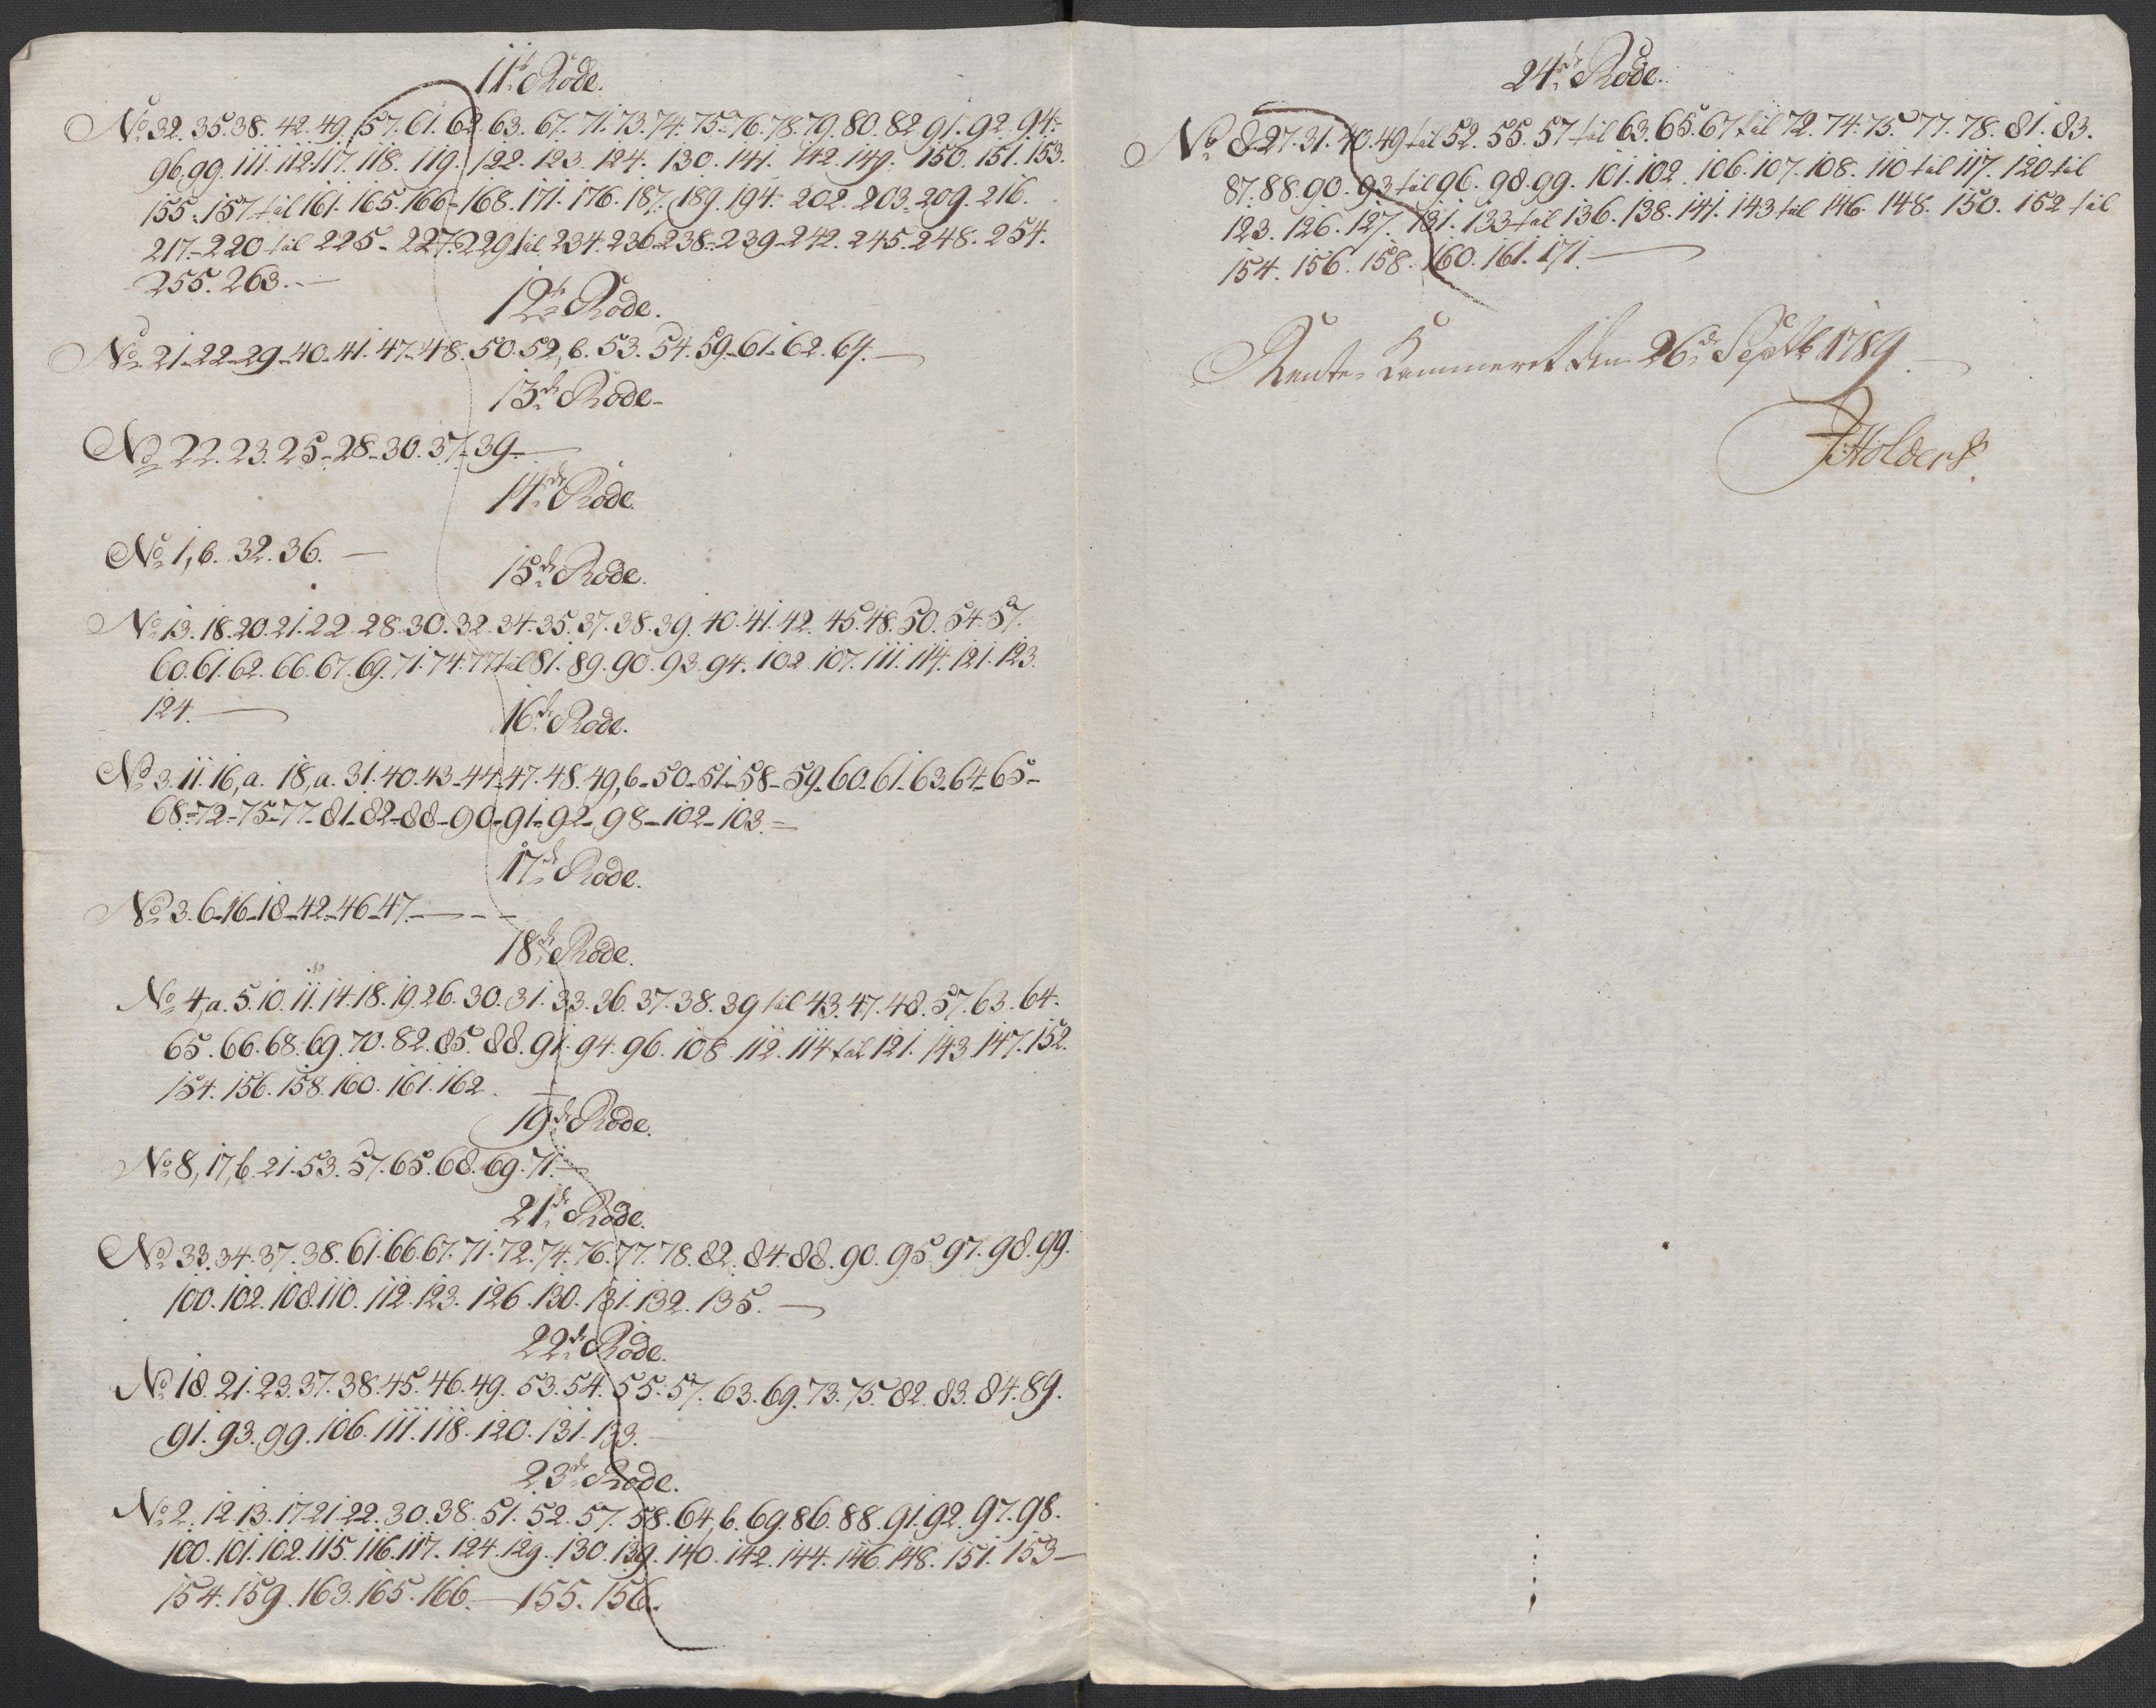 11te Rode.
No 32. 35. 38. 42. 49. 57. 61. 62. 63. 67. 71. 73. 74. 75. 76. 78. 79. 80. 82. 91. 92. 94.
96. 99. 111. 112. 117. 118. 119. 122. 123. 124. 130. 141. 142. 149. 150. 151. 153.
155. 157 til 161. 165. 166. 168. 171. 176. 187. 189. 194. 202. 203. 209. 216.
217. 220 til 225. 227. 229 til 234. 236. 238. 239. 242. 245. 248. 254.
255. 263.
12te Rode.
No 21. 22. 29. 40. 41. 47. 48. 50. 52, b. 53. 54. 59. 61. 62. 64.
13de Rode.
No 22. 23. 25. 28. 30. 37. 39.
14de Rode.
No 1, b. 32. 36.
15de Rode.
No 13. 18. 20. 21. 22. 28. 30. 32. 34. 35. 37. 38. 39. 40. 41. 42. 45. 48. 50. 54. 57.
60. 61. 62. 66. 67. 69. 71. 74. 77 til 81. 89. 90. 93. 94. 102. 107. 111. 114. 121. 123.
124.
16de Rode.
No 3. 11. 16, a. 18, a. 31. 40. 43. 44. 47. 48. 49, b. 50. 51. 58. 59. 60. 61. 63. 64. 65.
68. 72. 75. 77. 81. 82. 88. 90. 91. 92. 98. 102. 103.
17de Rode.
No 3. 6. 16. 18. 42. 46. 47.
18de Rode.
No 4, a. 5. 10. 11. 14. 18. 19. 26. 30. 31. 33. 36. 37. 38. 39 til 43. 47. 48. 57. 63. 64.
65. 66. 68. 69. 70. 82. 85. 88. 91. 94. 96. 108. 112. 114 til 121. 143. 147. 152.
154. 156. 158. 160. 161. 162.
19de Rode.
No 8, 17, b. 21. 53. 57. 65. 68. 69. 71.
21de Rode.
No 33. 34. 37. 38. 61. 66. 67. 71. 72. 74. 76. 77. 78. 82. 84. 88. 90. 95. 97. 98. 99.
100. 102. 108. 110. 112. 123. 126. 130. 131. 132. 135.
22de Rode.
No 18. 21. 23. 37. 38. 45. 46. 49. 53. 54. 55. 57. 63. 69. 73. 75. 82. 83. 84. 89.
91. 93. 99. 106. 111. 118. 120. 131. 133.
23de Rode.
No 2. 12. 13. 17. 21. 22. 30. 38. 51. 52. 57. 58. 64, b. 69. 86. 88. 91. 92. 97. 98.
100. 101. 102. 115. 116. 117. 124. 129. 130. 139. 140. 142. 144. 146. 148. 151. 153
154. 159. 163. 165. 166. — 155. 156.
24de Rode.
No 8. 27. 31. 40. 49 til 52. 55. 57 til 63. 65. 67 til 72. 74. 75. 77. 78. 81. 83.
87. 88. 90. 93 til 96. 98. 99. 101. 102. 106. 107. 108. 110 til 117. 120 til
123. 126. 127. 131. 133 til 136. 138. 141. 143 til 146. 148. 150. 152 til
154. 156. 158. 160. 161. 171.
Rente Kammeret den 26de Septb 1789
Holdert.